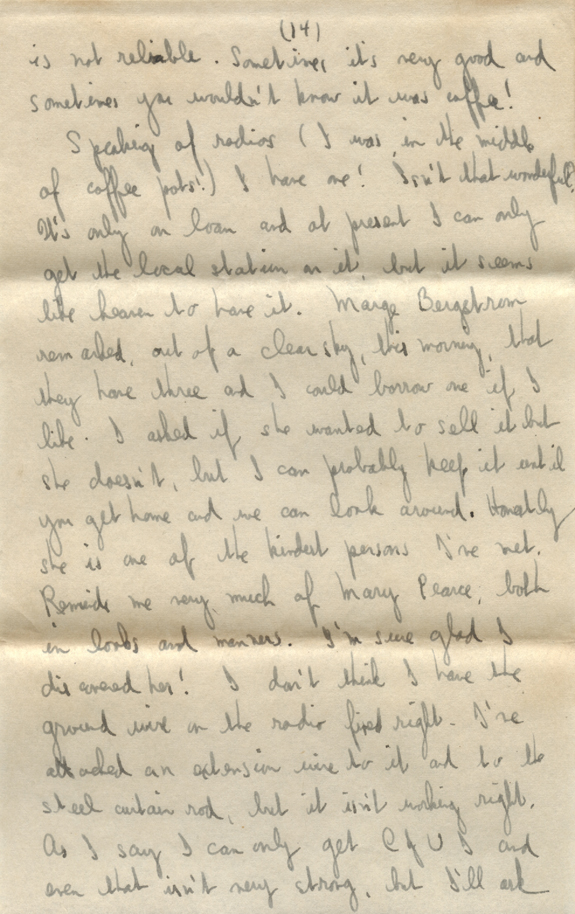 (14)
is not reliable. Sometimes it's very good and
sometimes you wouldn't know it was coffee!
Speaking of radios (I was in the middle
of coffee pots!) I have one! Isn't that wonderful?
It's only on loan and at present I can only
get the local station on it, but it seems
like heaven to have it. Marge Bergstrom
remarked, out of a clear sky, this morning, that
they have three and I could borrow one if I
like. I asked if she wanted to sell it but
she doesn't, but I can probably keep it until
you get home and we can look around. Honestly
she is one of the kindest persons I've met.
Reminds me very much of Mary Pearce, both
in looks and manners. I'm sure glad I
discovered her! I don't think I have the
ground wire on the radio fixed right. I've
attached an extension wire to it and to the
steel curtain rod, but it isn't working right.
As I say I can only get and
even that isn't very strong, but I'll ask